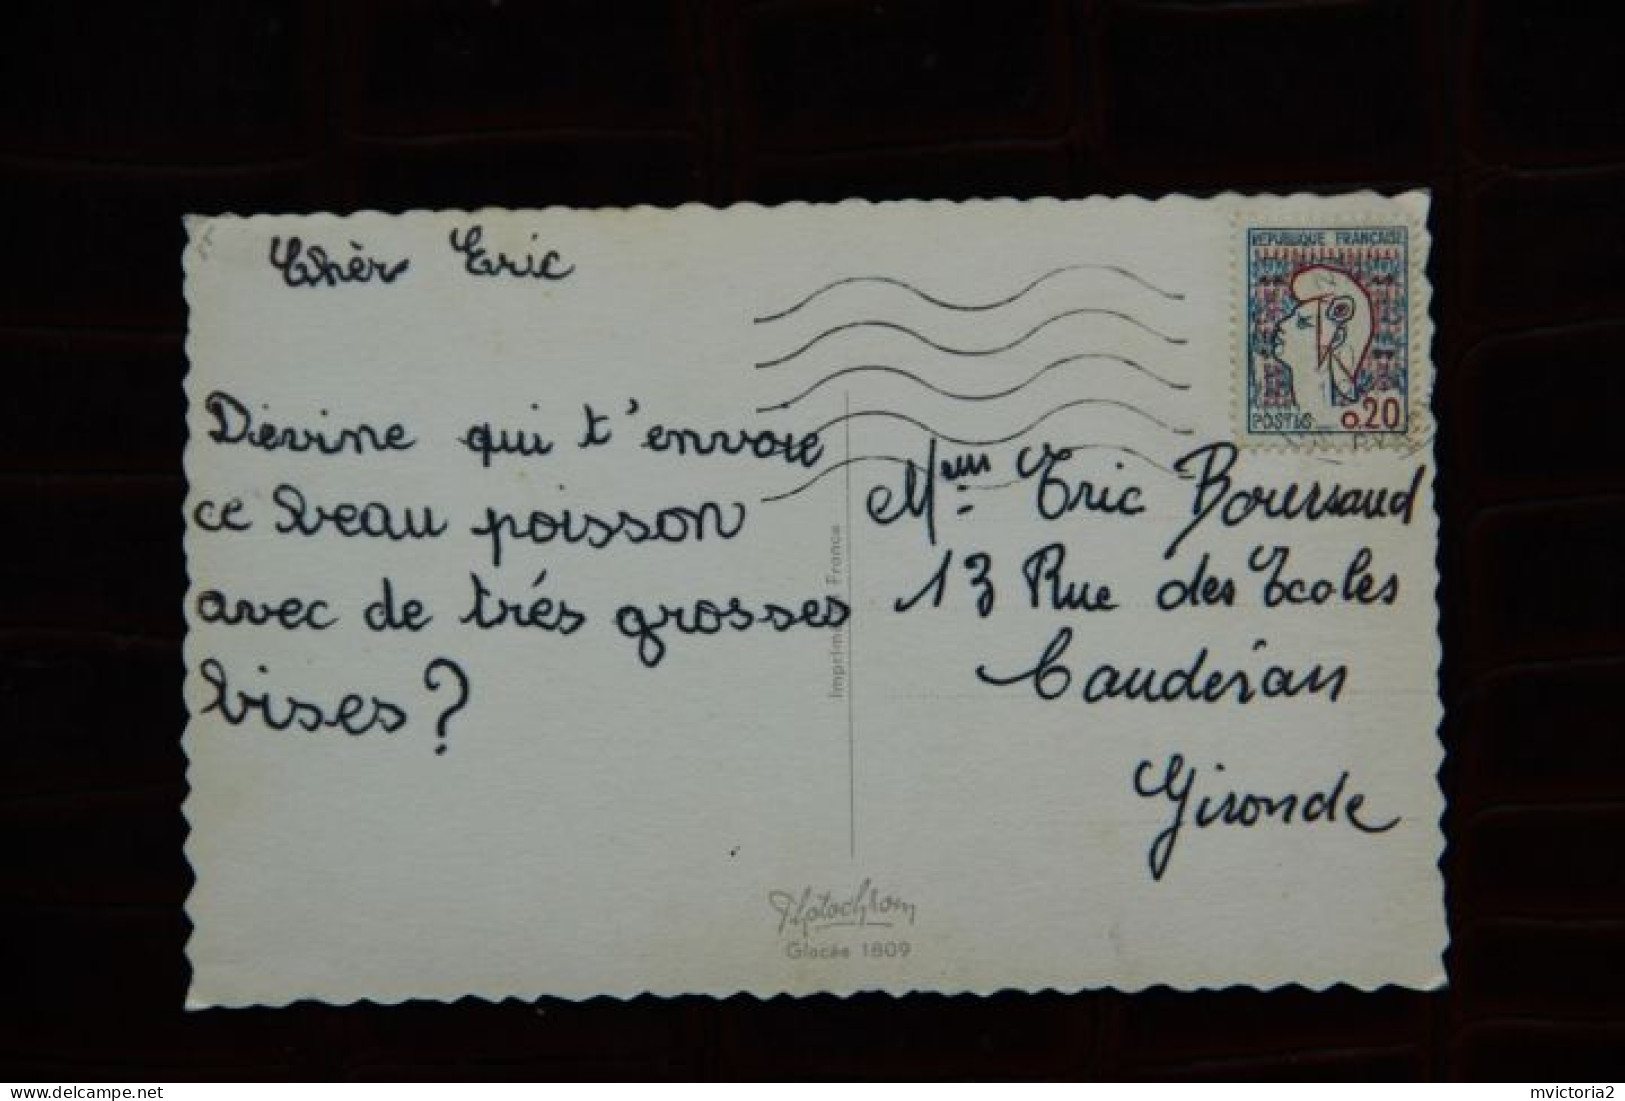 Chèr Eric
Dievine qui t'envoie
ce beau poisson
avec de trés grosses
bises ?
REPUBLIQUE FRANÇAISE
POSTES 0.20
Eric Boursaud
13 Rue des Ecoles
Caudéran
Gironde
Imprimé France
Photochrom
Glacée 1809
delcampe.net
mvictoria2